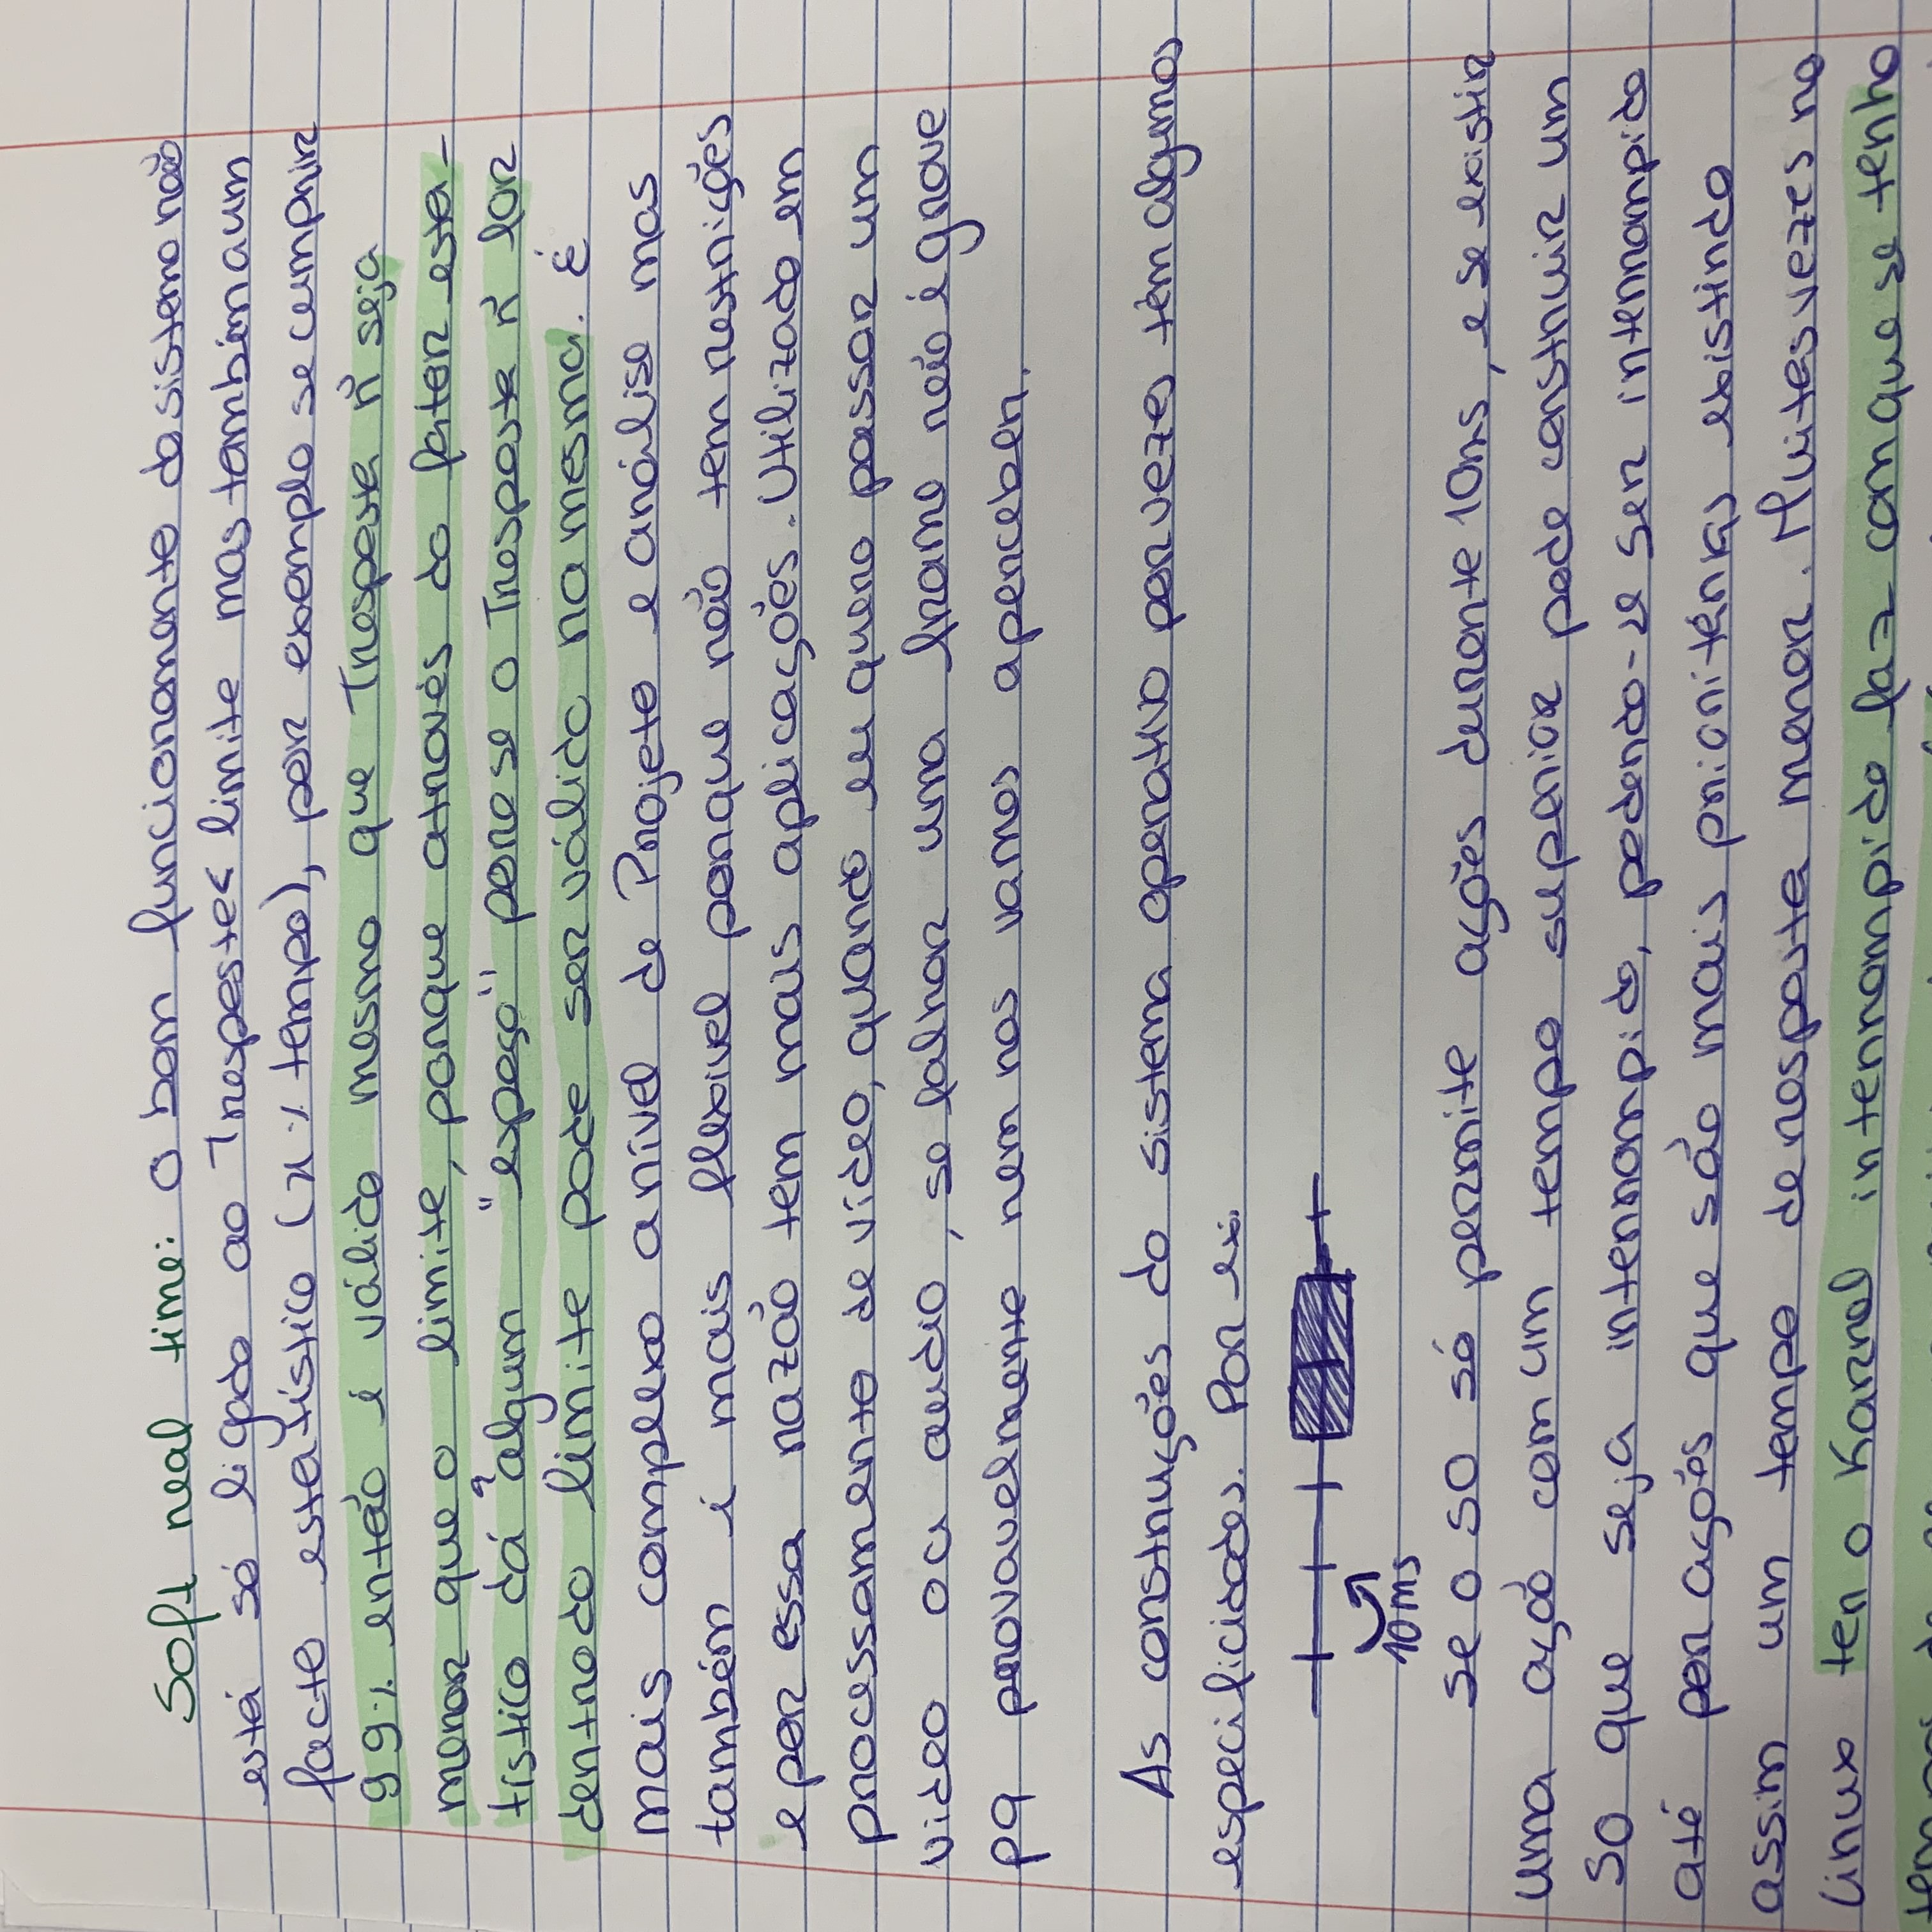 Soft real time: o bom funcionamento do sistema não
está só ligado ao Tresposta < limite mas também a um
facto estatístico (x % tempo), por exemplo se cumprir
99% então é válido mesmo que Tresposta ñ seja
menor que o limite, porque através do fator esta-
tístico dá algum "espaço" para se o Tresposta ñ for
dentro do limite pode ser válido na mesma. É
mais complexo a nível de Projeto e análise mas
também é mais flexivel porque não tem restrições
e por essa razão tem mais aplicações. Utilizado em
processamento de vídeo, quando eu quero passar um
video ou audio, se falhar uma frame não é grave
pq provavelmente nem nos vamos aperceber.
As construções do sistema operativo por vezes têm algumas
especificidades. Por ex:
10ms
se o SO só permite ações durante 10ms, e se existir
uma ação com um tempo superior pode construir um
SO que seja interrompido, podendo-se ser interrompido
até por ações que são mais prioritárias existindo
assim um tempo de resposta menor. Muitas vezes no
linux ter o Karnel interrompido faz com que se tenha
tempos de